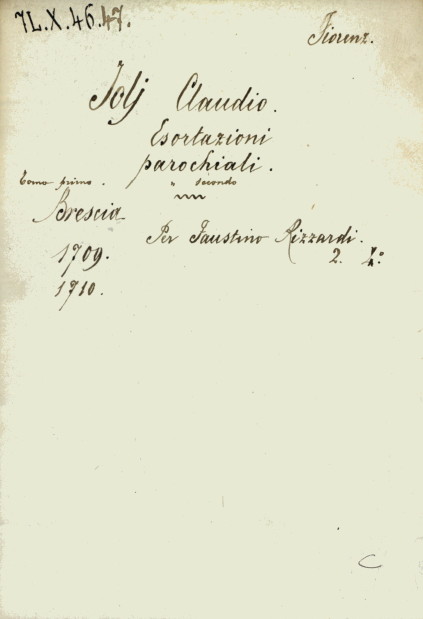 7L.X.46.47.
Fiorenz.
Jolj Claudio.
Esortazioni
parochiali.
Tomo primo. " secondo
Brescia
Per Faustino Rizzardi.
1709. 2.
1710.